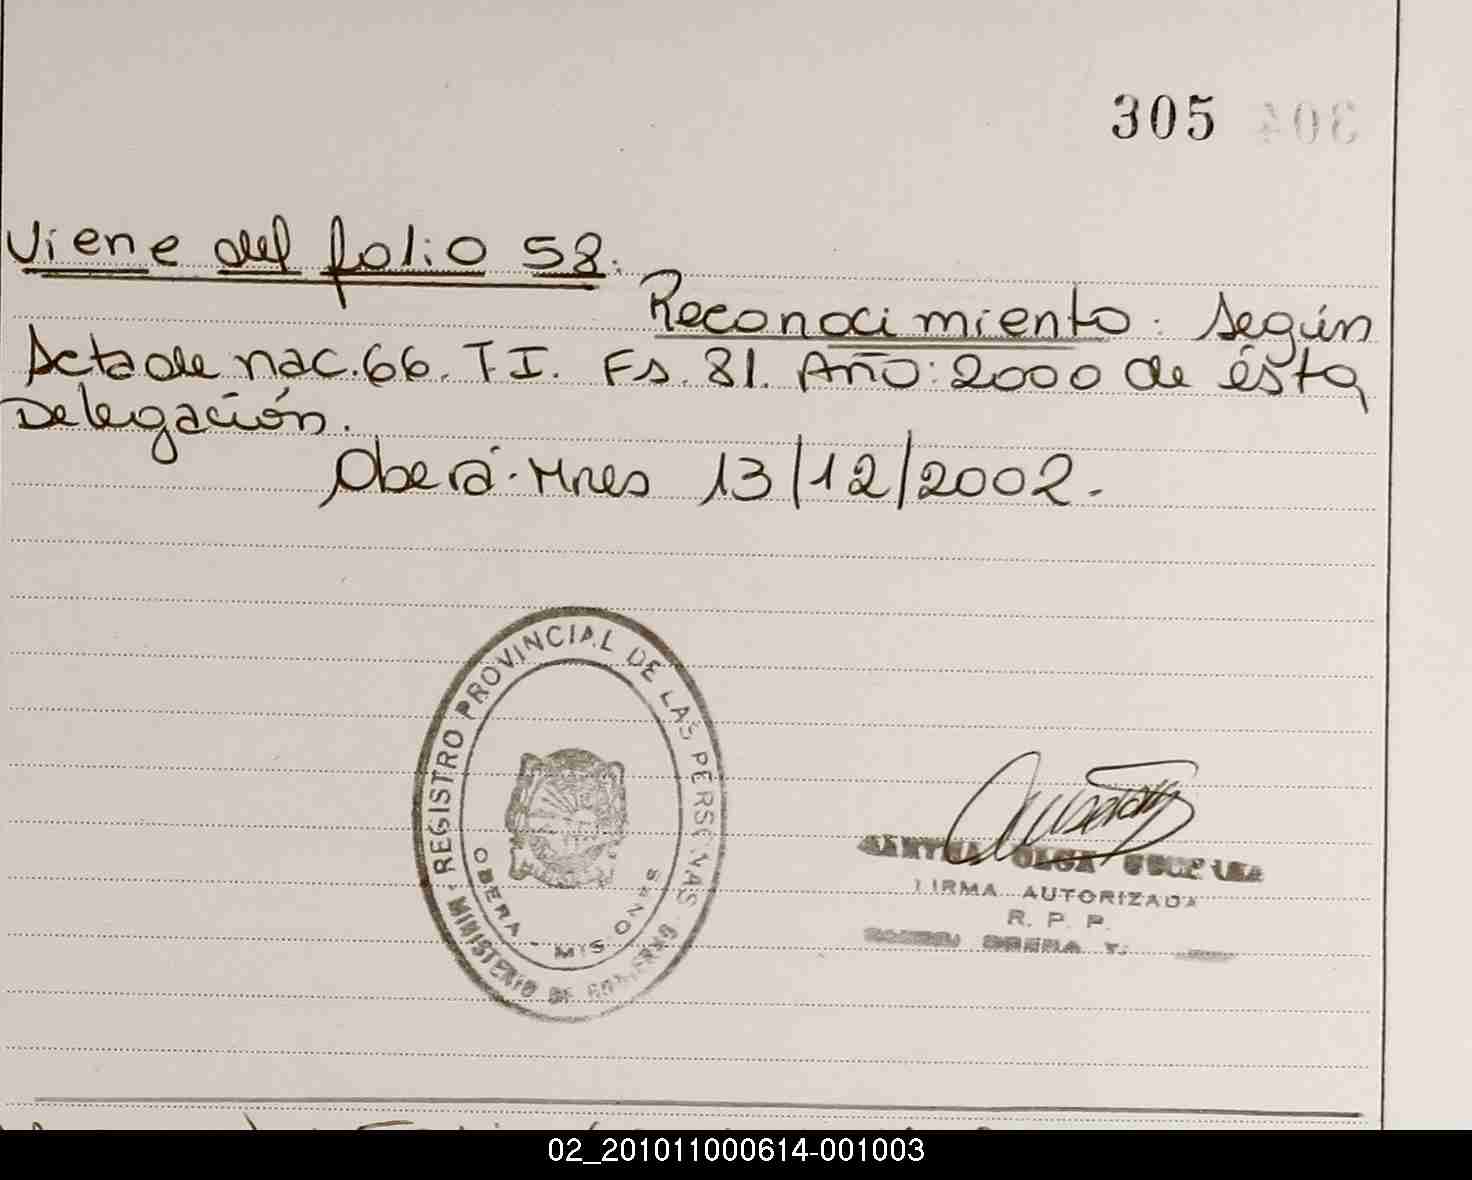 305
Viene del folio 58.
Reconocimiento. Según
Acta de nac. 66. T I. Fs. 81. Año: 2000 de ésta
Delegación.
Oberá - Mnes 13/12/2002.-
REGISTRO PROVINCIAL DE LAS PERSONAS
MINISTERIO DE
OBERA - MISIONES
FIRMA AUTORIZADA
R. P. P.
OBERA
02_201011000614-001003